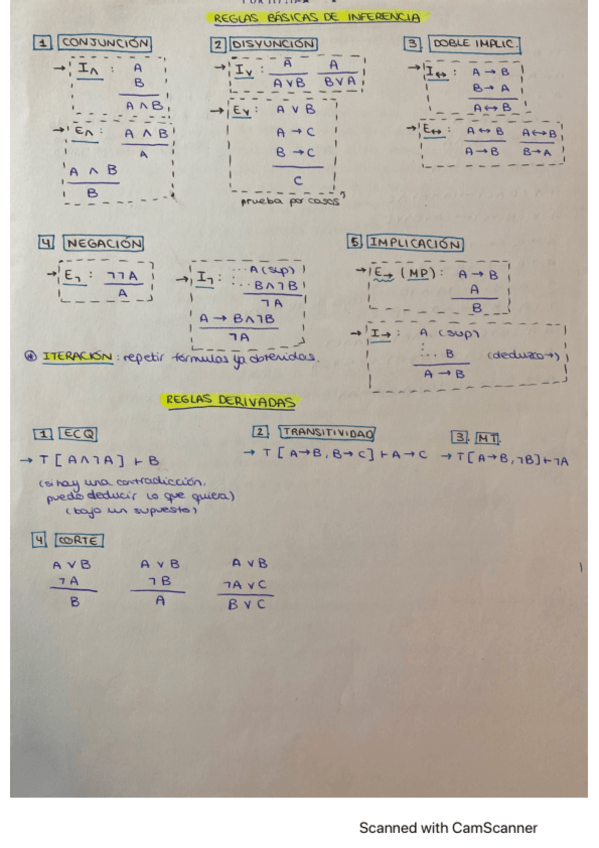 REGLAS BÁSICAS DE INFERENCIA
1 CONJUNCIÓN
→ I∧ : A
B
A ∧ B
→ E∧ : A ∧ B
A
A ∧ B
B
2 DISYUNCIÓN
→ I∨ : A A
A∨B B∨A
→ E∨ : A ∨ B
A → C
B → C
C
prueba por casos
3 DOBLE IMPLIC.
→ I↔ : A → B
B → A
A ↔ B
→ E↔ : A ↔ B A↔B
A→B B→A
4 NEGACIÓN
→ E¬ : ¬¬A
A
→ I¬ : A (sup)
B∧¬B
¬A
A → B∧¬B
¬A
5 IMPLICACIÓN
→ E→ (MP) : A → B
A
B
→ I→ : A (sup)
B (deduzco→)
A → B
* ITERACIÓN : repetir fórmulas ya obtenidas.
REGLAS DERIVADAS
1 ECQ
→ T [ A∧¬A ] ⊢ B
(si hay una contradicción,
puedo deducir lo que quiera)
(bajo un supuesto)
2. TRANSITIVIDAD
→ T [ A→B, B→C ] ⊢ A→C
3. MT
→ T [ A→B, ¬B] ⊢ ¬A
4 CORTE
A ∨ B A ∨ B A ∨ B
¬A ¬B ¬A ∨ C
B A B ∨ C
Scanned with CamScanner